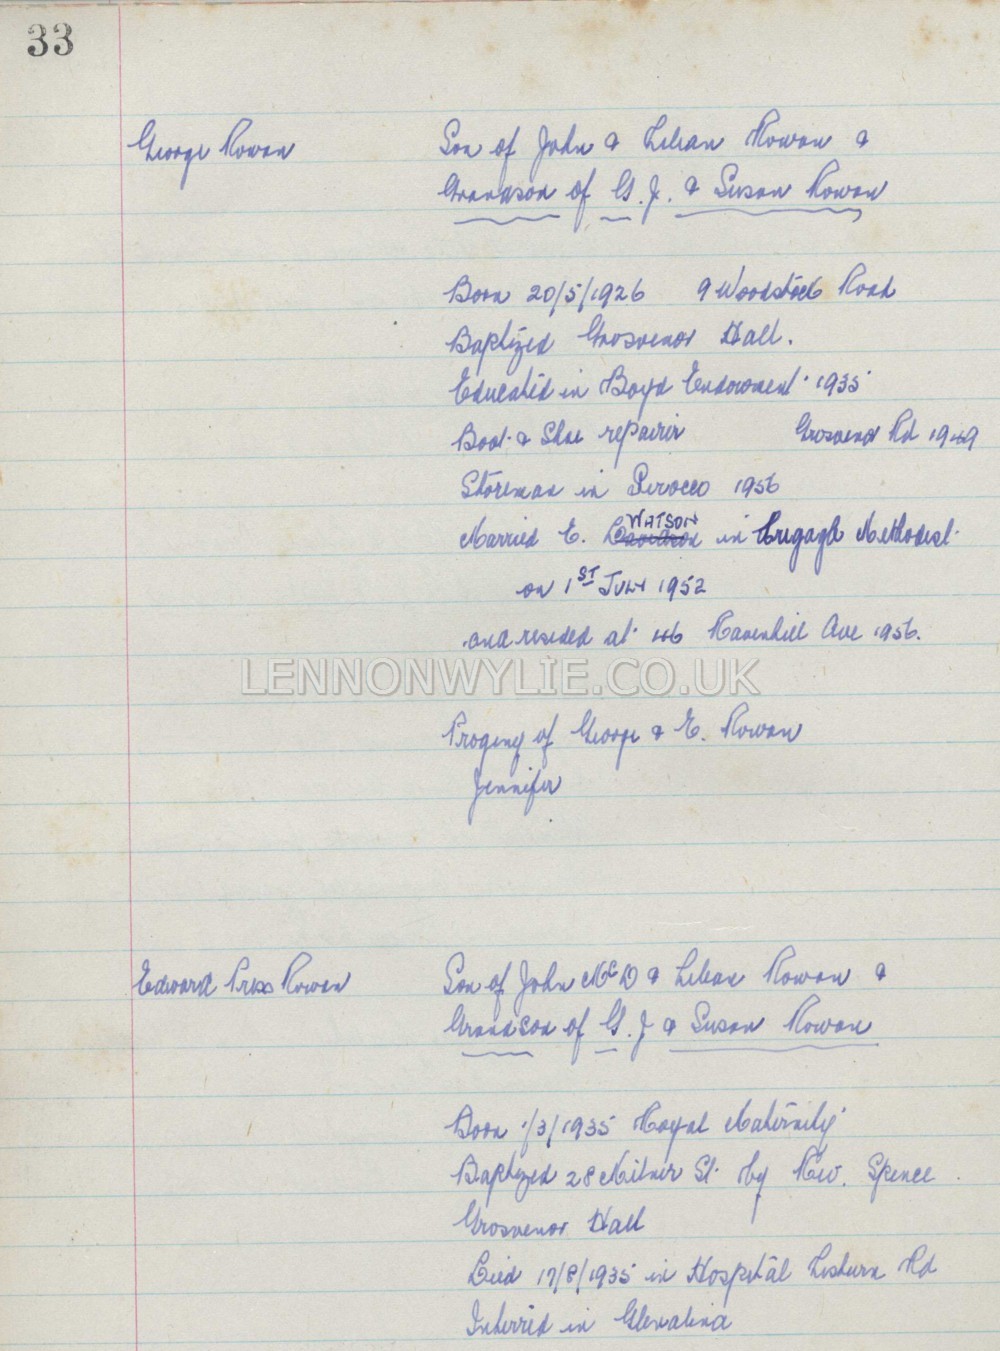 33
George Rowan
Son of John & Lilian Rowan &
Grandson of G. J. & Susan Rowan
Born 20/5/1926 9 Woodstock Road
Baptized Grosvenor Hall.
Educated in Boyd Endowment 1935
Boot & Shoe repairer Grosvenor Rd 1949
Storeman in Sirocco 1956
WATSON
Married E. Davidson in Cregagh Methodist
on 1ST JULY 1952
and resided at 46 Ravenhill Ave 1956.
LENNONWYLIE.CO.UK
Progeny of George & E. Rowan
Jennifer
Edward Rowan
Son of John McD & Lilian Rowan &
Grandson of G. J & Susan Rowan
Born 1/3/1935 Royal Maternity
Baptized 28 Milner St. by Rev. Spence
Grosvenor Hall
Died 17/8/1935 in Hospital Lisburn Rd
Interred in Glenalina